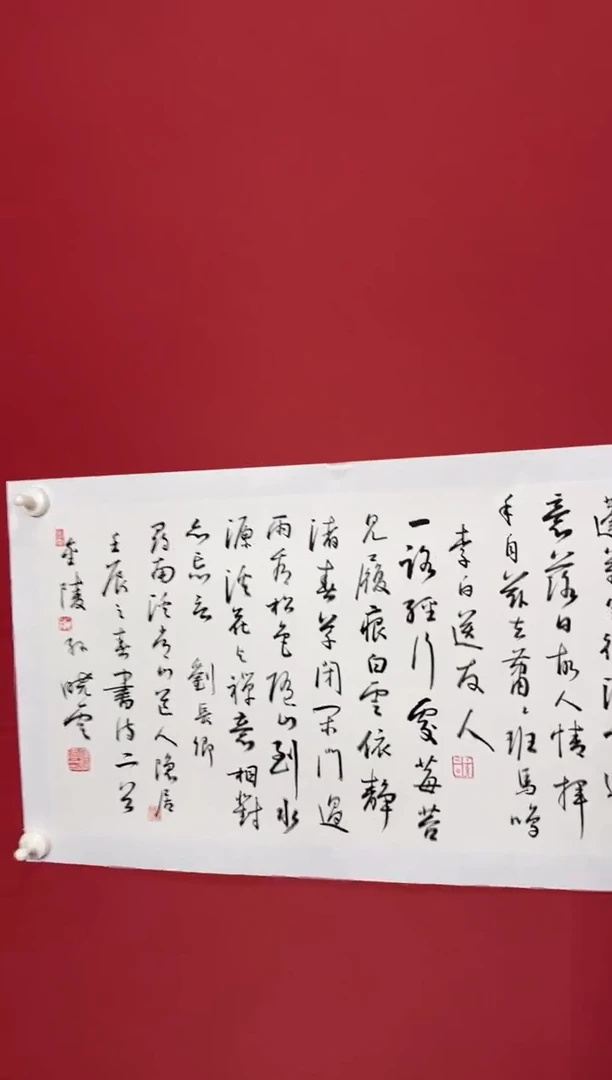 意落日故人情揮
手自茲去蕭々班馬鳴
李白送友人
一路經行處莓苔
見履痕白雲依靜
渚春草閉閑門過
雨看松色隨山到水
源溪花與禪意相對
亦忘言 劉長卿
尋南溪常山道人隱居
壬辰之春書詩二首
金陵孫曉雲